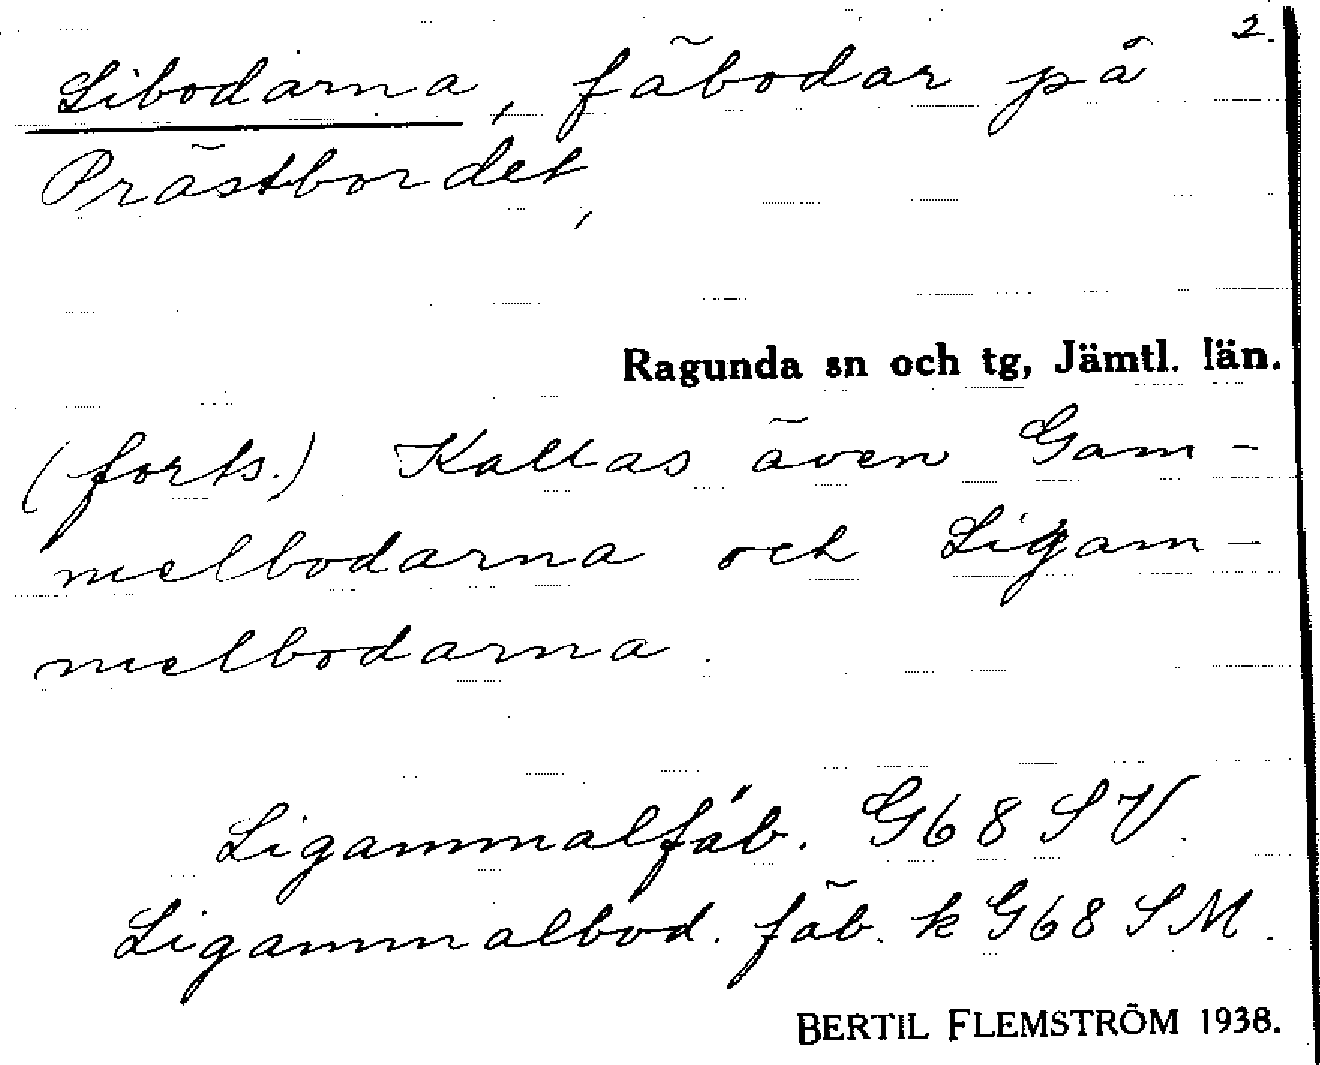 2.
Libodarna, fäbodar på
Prästbordet,
Ragunda sn och tg, Jämtl. län.
(forts.) Kallas även Gam-
melbodarna och Ligam-
melbodarna.
Ligammalfäb. G68SV.
Ligammalbod. fäb. k G68SM.
BERTIL FLEMSTRÖM 1938.